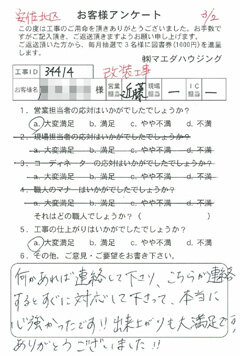 安佐北区
お客様アンケート
3/2
この度は工事のご用命を頂きありがとうございました。お手数で
すがご記入頂き、ご返送頂きますようお願い申し上げます。
ご返送頂いた方から、毎月抽選で3名様に図書券(1000円)を進呈
します。
㈱マエダハウジング
工事ID 34414
改装工事
お客様名 様 営業担当 近藤 現場担当 ― IC担当 ―
1. 営業担当者の応対はいかがでしたでしょうか?
a.大変満足 b.満足 c.やや不満 d.不満
2. 現場担当者の応対はいかがでしたでしょうか?
a.大変満足 b.満足 c.やや不満 d.不満
3. コーディネーターの応対はいかがでしたでしょうか?
a.大変満足 b.満足 c.やや不満 d.不満
4. 職人のマナーはいかがでしたでしょうか?
a.大変満足 b.満足 c.やや不満 d.不満
それはどの職人でしょうか?( )
5. 工事の仕上がりはいかがでしたでしょうか?
a.大変満足 b.満足 c.やや不満 d.不満
6. その他、ご意見・ご要望をお書き下さい。
何かあれば連絡して下り、こちらが連絡
するとすぐに対応して下さって、本当に
心強かったです!!出来上がりも大満足です。
ありがとうございました!!